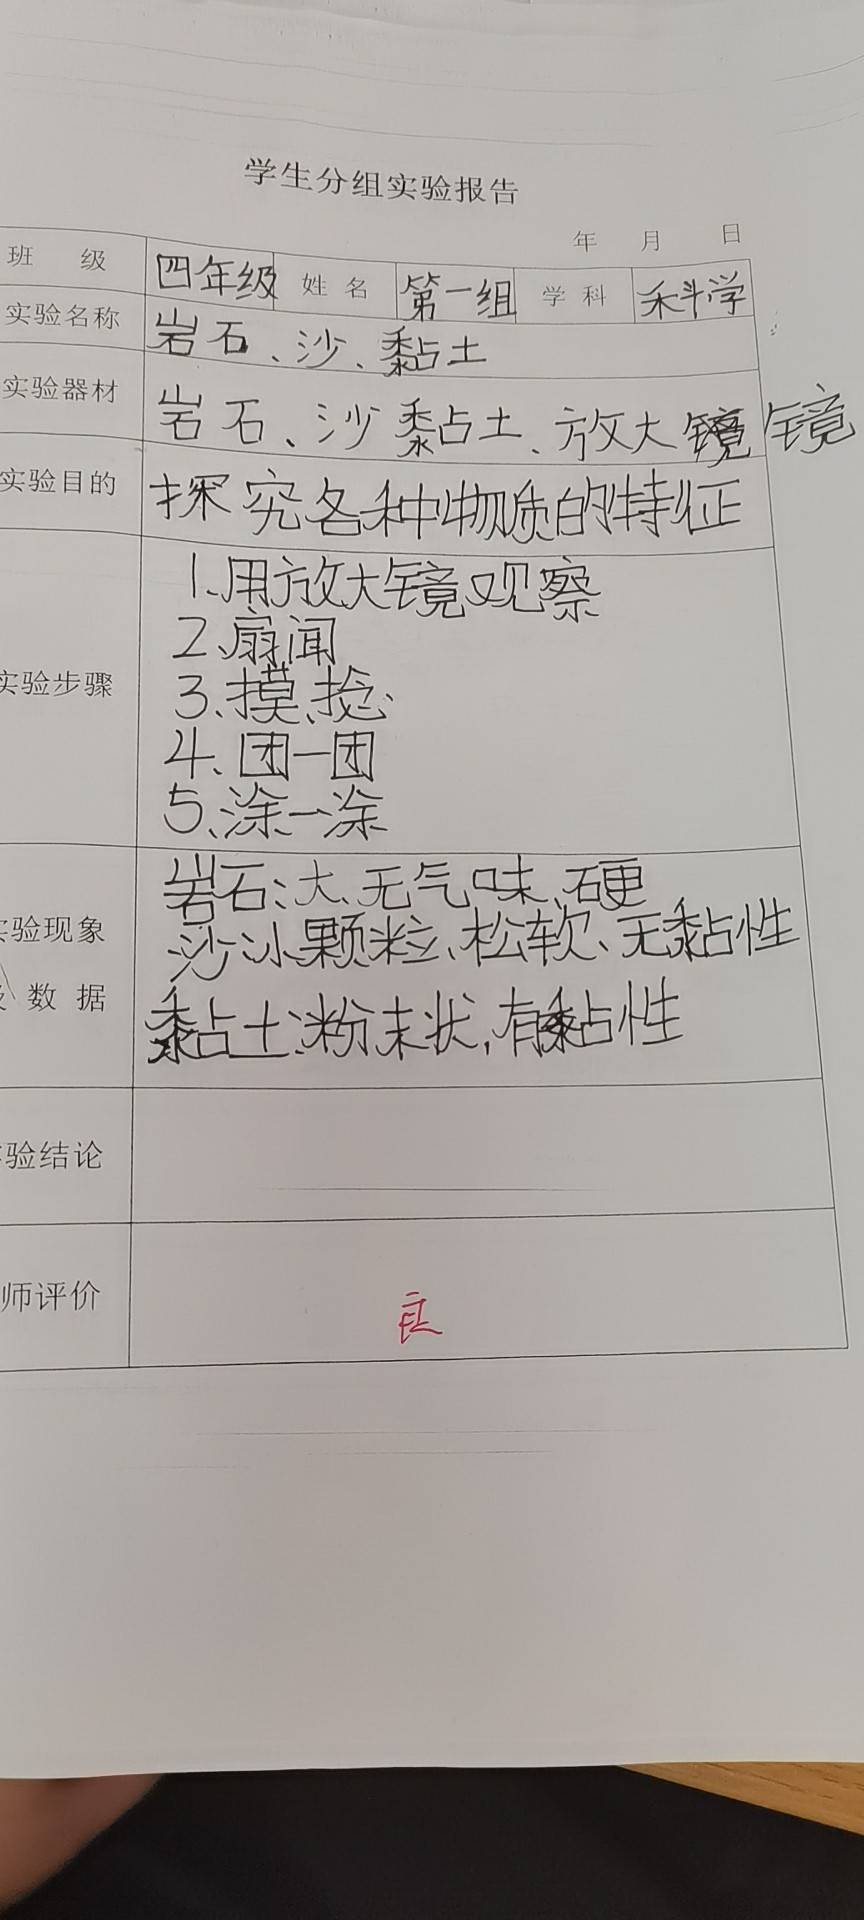 学生分组实验报告
年 月 日
班 级 四年级 姓 名 第一组 学 科 科学
实验名称 岩石、沙、黏土
实验器材 岩石、沙黏土、放大镜镜
实验目的 探究各种物质的特征
实验步骤
1、用放大镜观察
2、扇闻
3、摸、捻
4、团一团
5、涂一涂
实验现象
数 据
岩石:大、无气味、硬
沙:小颗粒、松软、无黏性
黏土:粉末状,有黏性
验结论
师评价
良